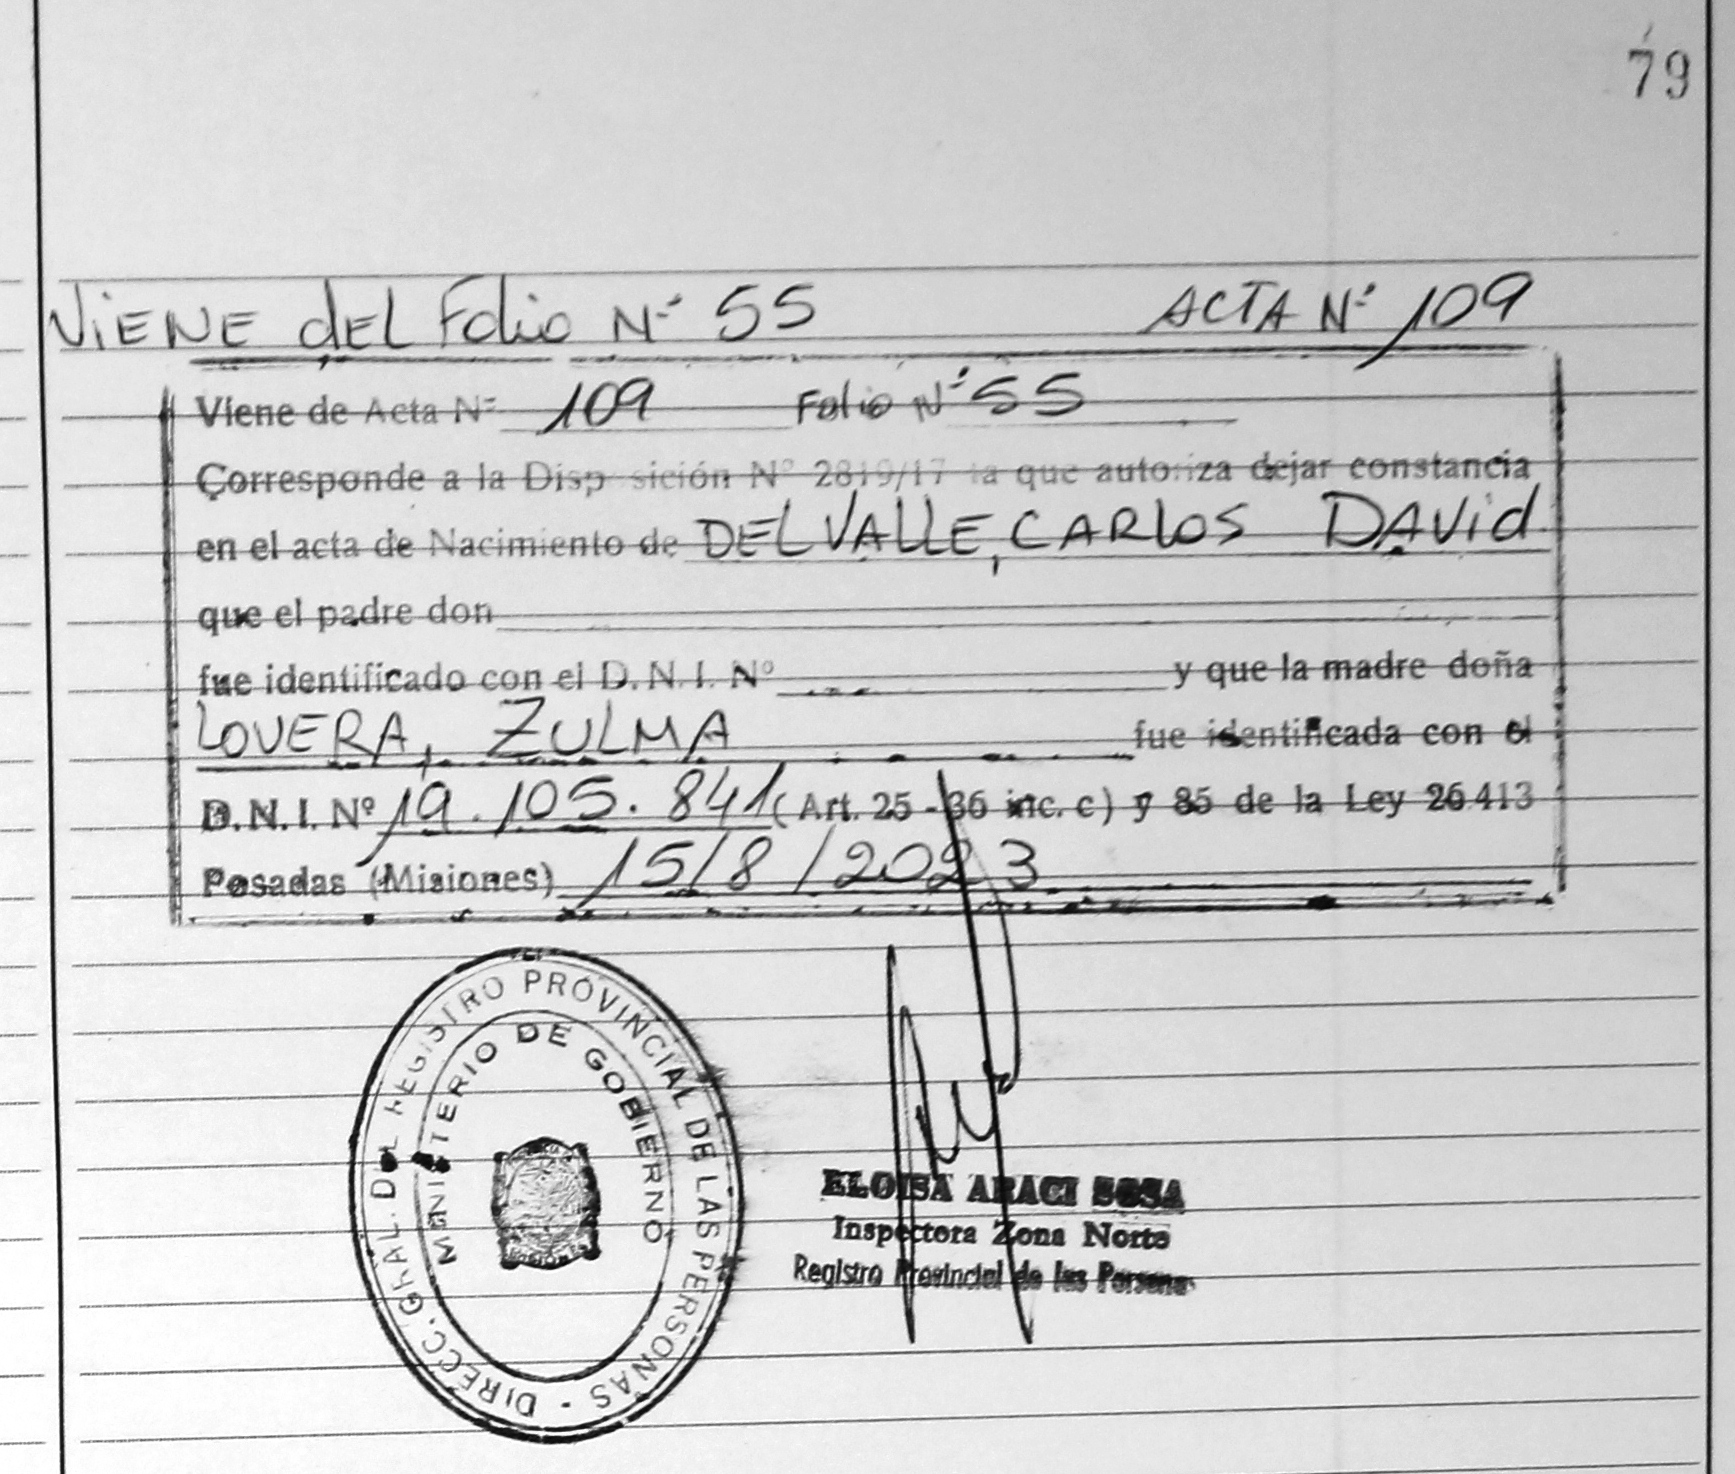 79
ViENE dEL Folio Nº 55 ACTA Nº 109
Viene de Acta Nº 109 Folio Nº 55
Corresponde a la Disposición Nº 2819/17 la que autoriza dejar constancia
en el acta de Nacimiento de DELVALLE, CARLOS DAVid
que el padre don
fue identificado con el D.N.I. Nº y que la madre doña
LOVERA, ZULMA fue identificada con el
D.N.I. Nº 19.105.841 (Art. 25 - 36 inc. c) y 85 de la Ley 26.413
Posadas (Misiones) 15/8/2023
DIRECC. GRAL. DEL REGISTRO PROVINCIAL DE LAS PERSONAS -
MINISTERIO DE GOBIERNO
ELOISA ARACI SOSA
Inspectora Zona Norte
Registro Provincial de las Personas